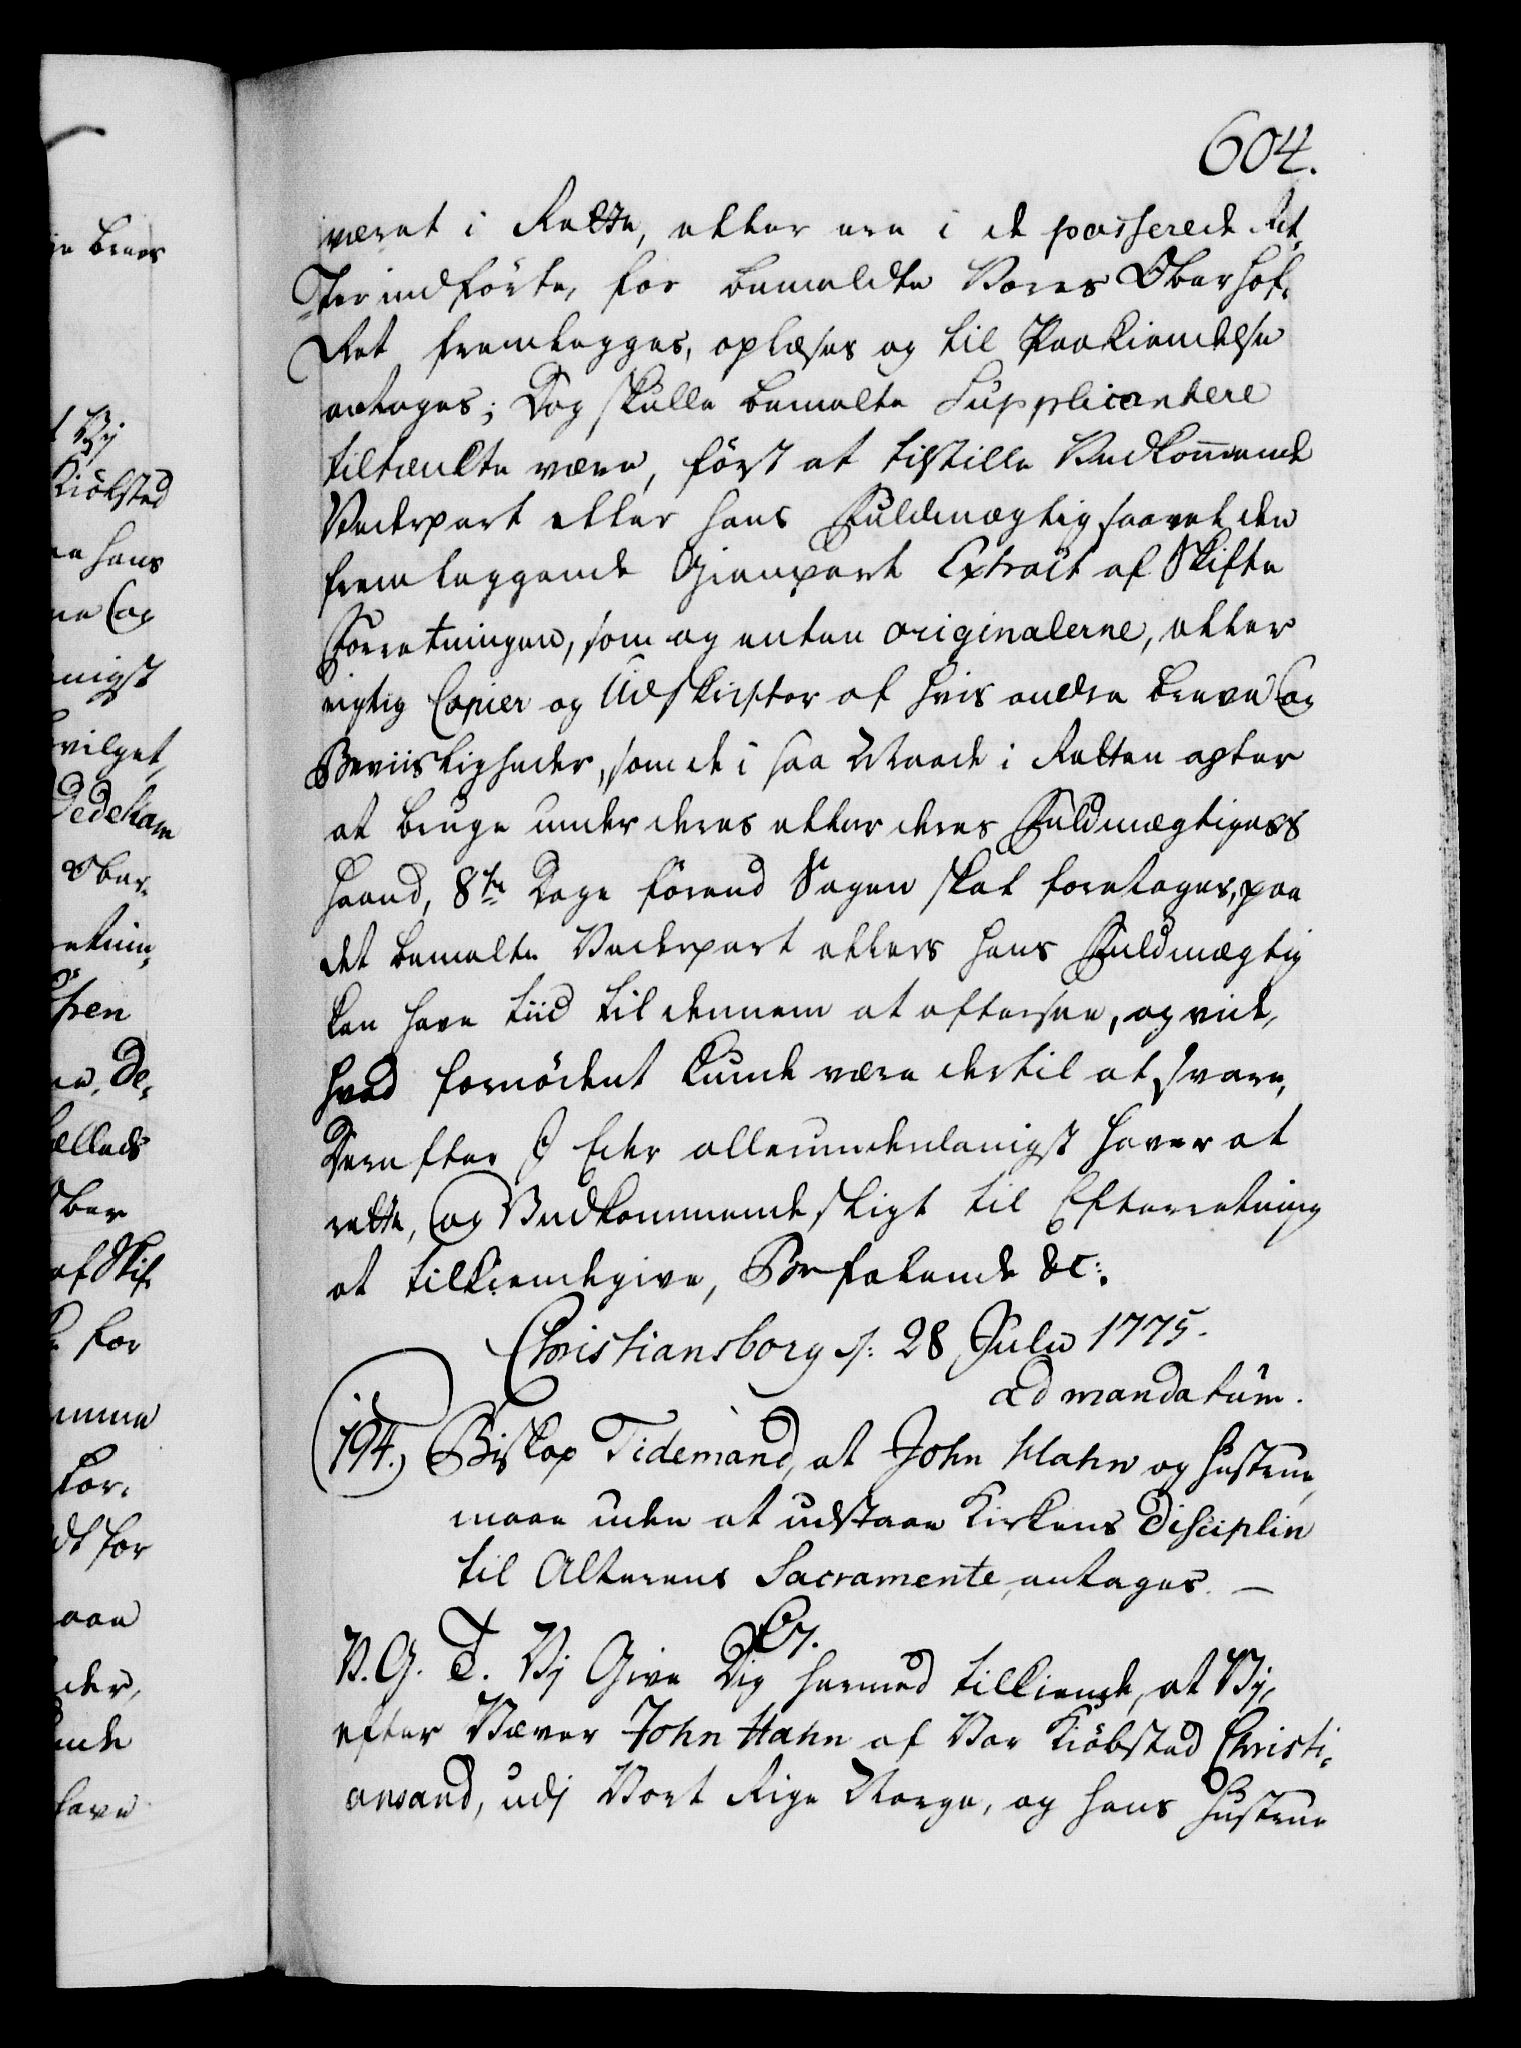 604.
været i Rette, eller ere i de passerede Act,
ter indførte, for bemeldte Vores Oberhof,
Ret fremlegges, oplæses og til Paakiendelse
antages; Dog skulle bemelte Supplicantere
tiltænkte være, først at tilstille Vedkom̄ende
Vederpart eller hans Fuldmægtig saavel den
fremleggende Gienpart Extract af Skifte
Forretningen, som og enten originalerne, eller
rigtig Copier og Udskrifter af hvis andre breve og
Beviisligheder, som de i saa Maade i Retten agter
at bruge under deres eller deres Fuldmægtigess
Haand, 8te Dage førend Sagen skal foretages, paa
det bemelte Vederpart ellers hans Fuldmægtig
kan have tiid til dennem at eftersee, og vide,
hvad fornødent kunde være dertil at svare,
Derefter I Eder allerunderdanigst haver at
rette, og Vedkommende sligt til Efterretning
at tilkiendegive, Befalende &c:
Christiansborg s: 28 Julii 1775.
ad mandatum.
194.) Biskop Tidemand, at John Hahn og Hustrue,
maae uden at udstaae Kirkens Disciplin
til Alterens Sacramente, antages. —
Cs.
V. G. T. Vj Give Dig hermed tilkiende, at Vj,
efter Væver John Hahn af Vor Kiøbsted Christi-
ansand, udj Vort Rige Norge, og hans Hustrue
je breve
t Vj
Kiöbsted
hans
og
nigst
vilget,
Dedekam
Ober-
De-
Ober
af Skif-
for
for
der,
have